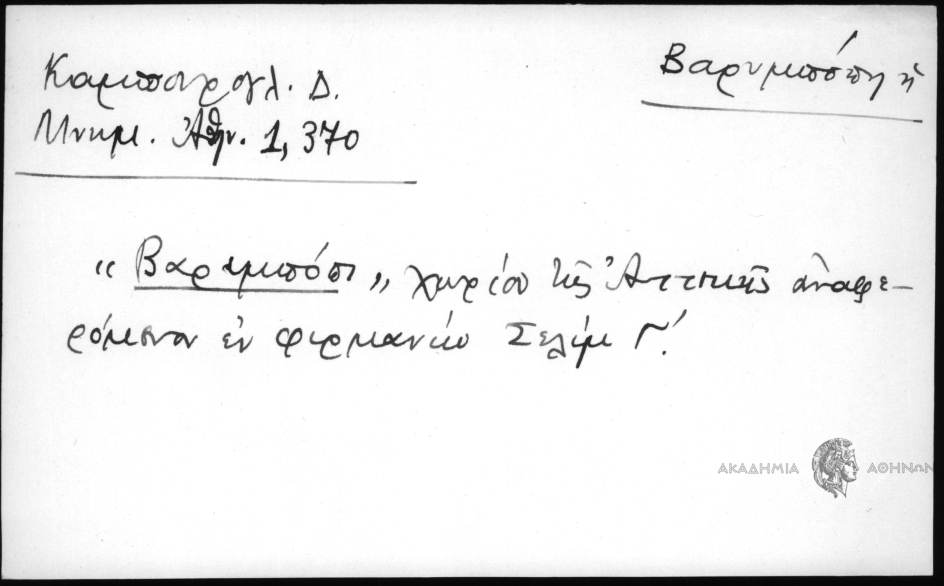 Καμπούρογλ. Δ.
Μνημ. Ἀθην. 1, 370
Βαρυμπόπη ἡ
"Βαρυμπόπι" χωρίον τῆς Ἀττικῆς ἀναφε-
ρόμενον ἐν φιρμανίῳ Σελίμ Γ΄.
ΑΚΑΔΗΜΙΑ ΑΘΗΝΩΝ